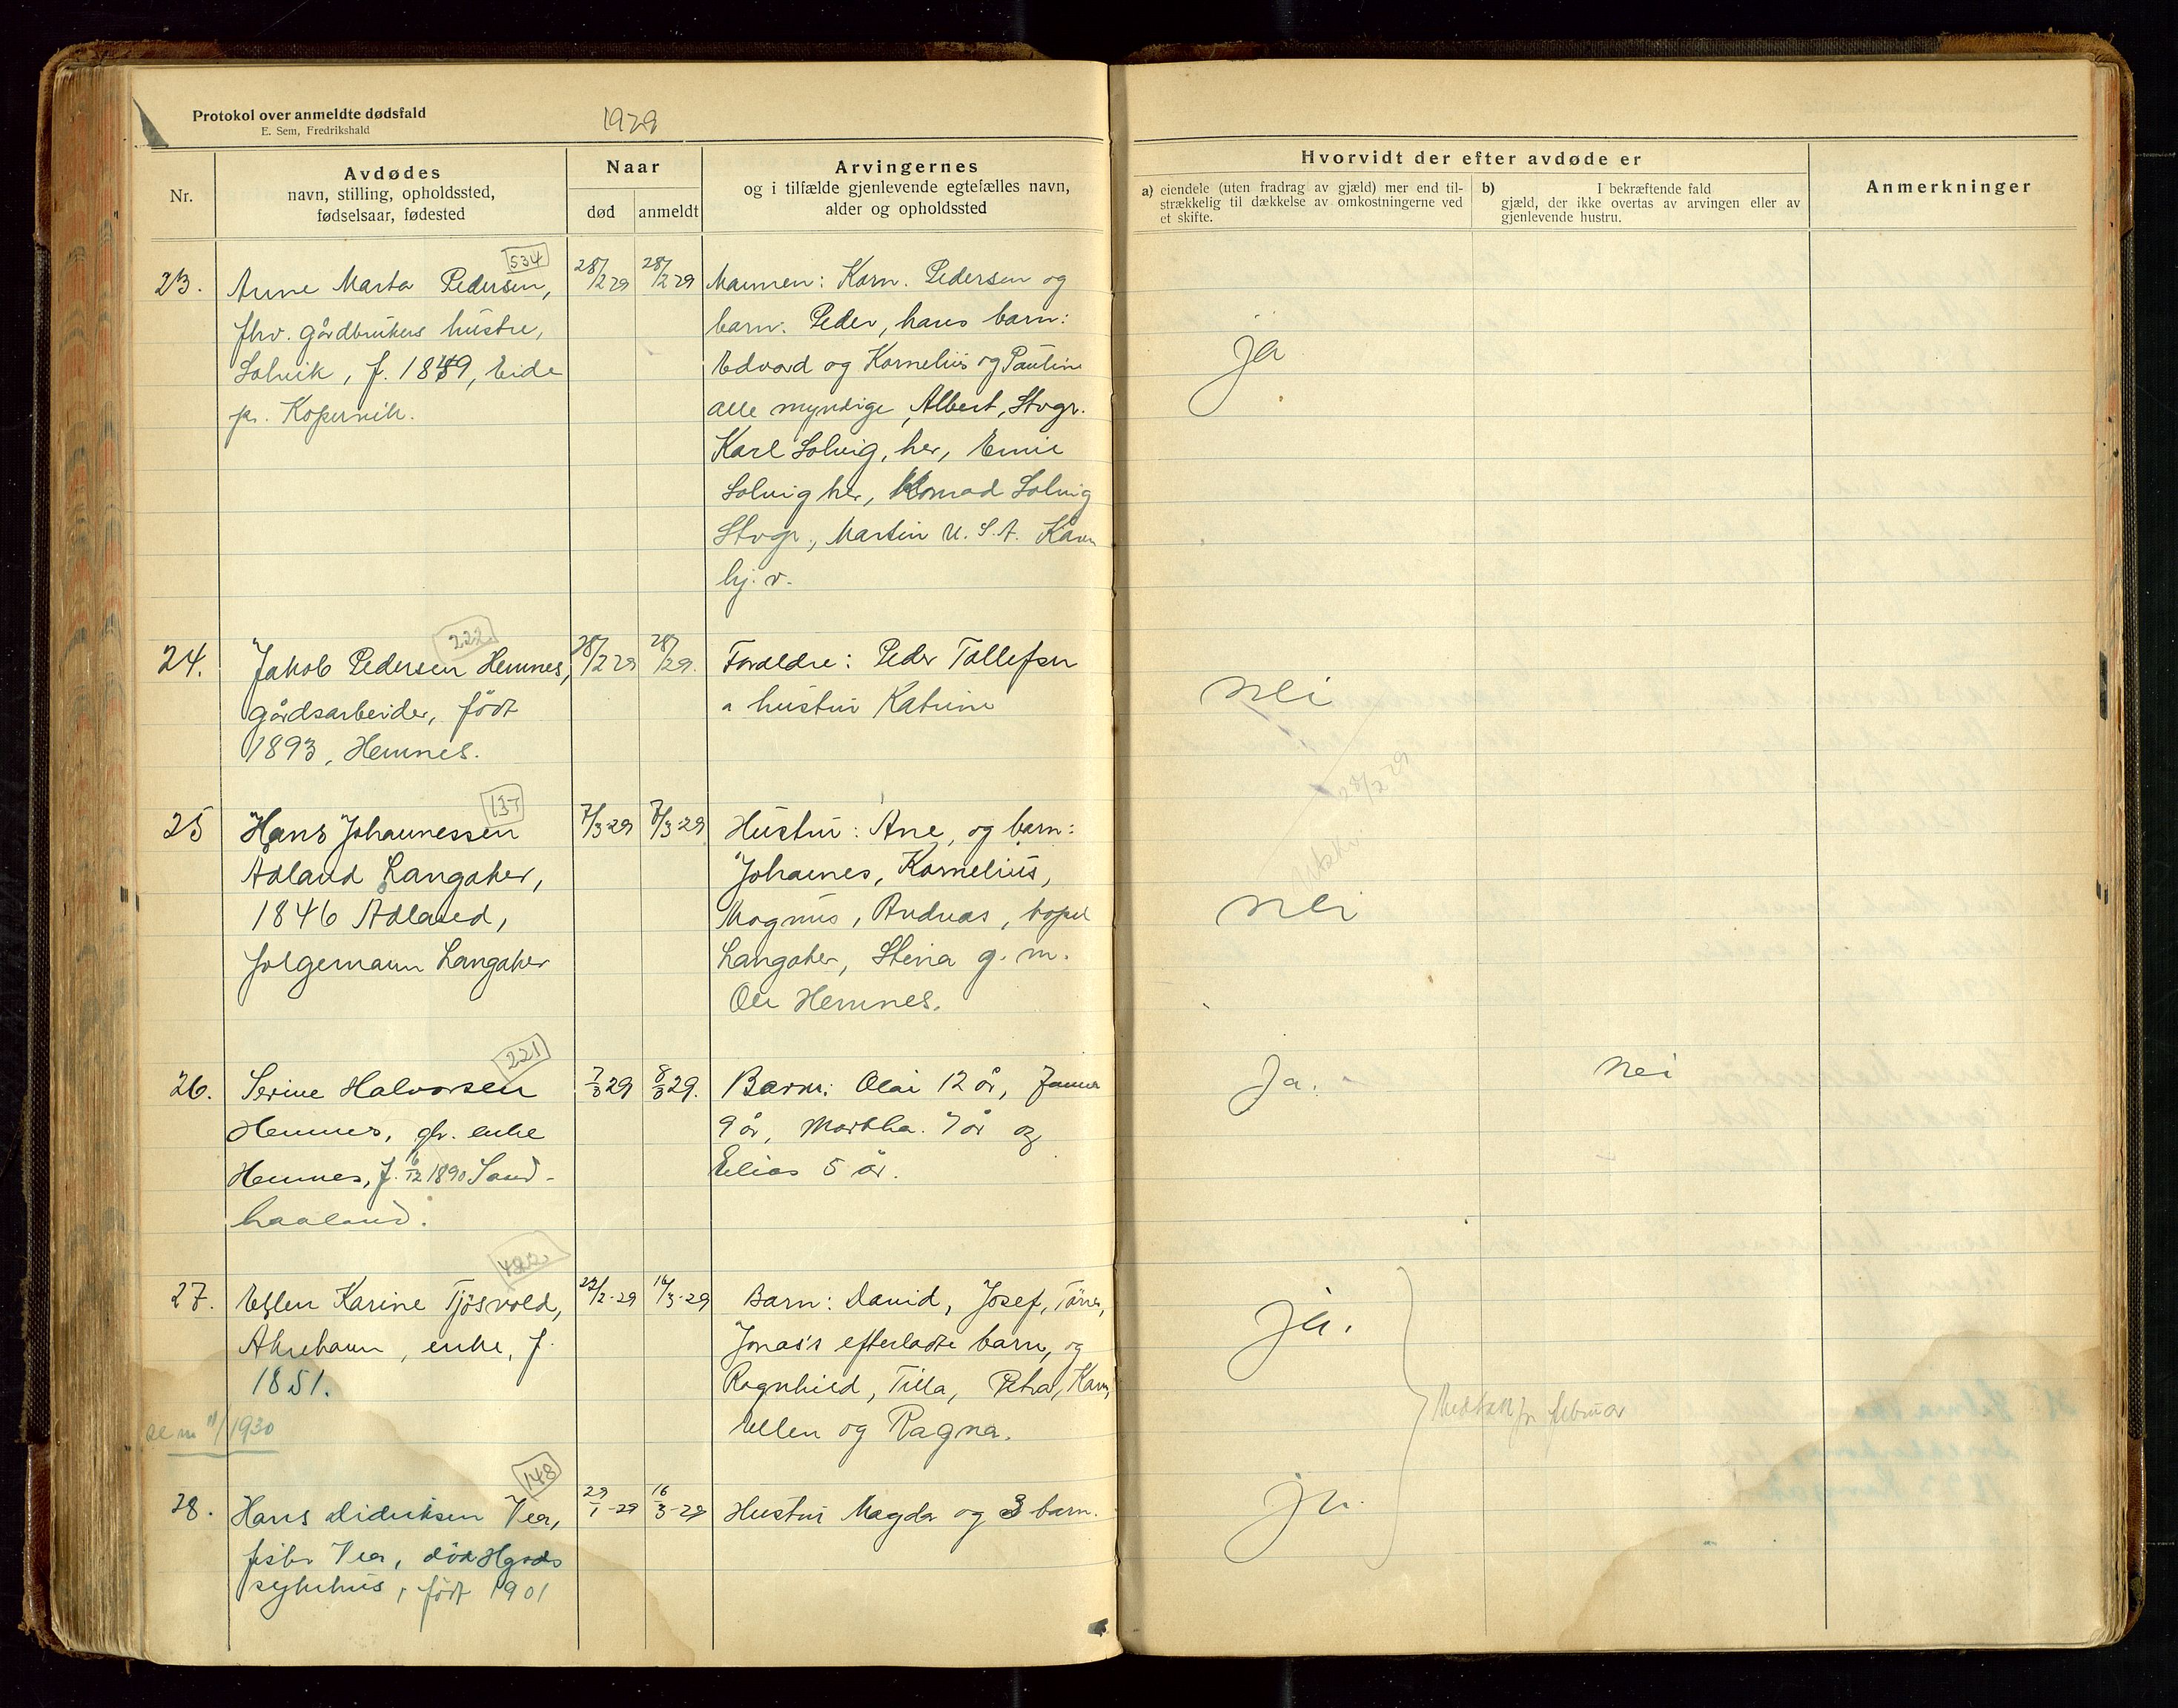 Protokol over anmeldte dødsfald
E. Sem, Fredrikshald
1929
Nr.
Avdødes
navn, stilling, opholdssted,
fødselsaar, fødested
Naar
død
anmeldt
Arvingernes
og i tilfælde gjenlevende egtefælles navn,
alder og opholdssted
Hvorvidt der efter avdøde er
a) eiendele (uten fradrag av gjæld) mer end til-
strækkelig til dækkelse av omkostningerne ved
et skifte.
b) I bekræftende fald
gjæld, der ikke overtas av arvingen eller av
gjenlevende hustru.
Anmerkninger
534
23.
Anne Marta Pedersen,
fhv. gårdbrukers hustru,
Solvik, f. 1849, Eide
pr. Kopervik.
28/2 29
28/2 29
Mannen: Korn. Pedersen og
barn: Peder, hans barn:
Edvard og Kornelius og Pauline
alle myndige, Albert, Stvgr.
Karl Solvig, her, Emil
Solvig her, Konrad Solvig
Stvgr., Martin U. S. A.
hj. v.
ja
222
24.
Jakob Pedersen Hemnes,
gårdsarbeider, født
1893, Hemnes.
28/2 29
28/29.
Foreldre: Peder Tollefsen
a hustru Katrine
nei
28/2 29
137
25
Hans Johannessen
Adland Langaker,
1846 Adland,
Langaker
7/3-29
8/3-29
Hustru: Ane, og barn:
Johannes, Kornelius,
Magnus, Andreas, bopel
Langaker, Stina g. m.
Ole Hemnes.
nei
221
26.
Serine Halvorsen
Hemnes, gbr. enke
Hemnes, f. 6/12 1890 Sand-
haaland.
7/3 29
8/3 29.
Barn: Olai 12 år,
9 år, Martha 7 år og
Elias 5 år.
Ja.
Nei
422
27.
Ellen Karine Tjøsvold,
Akrehavn, enke, f.
1851.
se nr 11/1930
22/2-29
16/3-29
Barn: David, Josef,
Jonas's efterladte barn, og
Ragnhild, Tilla, Petra,
Ellen og Ragna.
ja.
Medtatt for februar
148
28.
Hans Didriksen Vea,
fisker Vea, død Hgsds
sykehus, født 1901
29/1-29
16/3-29
Hustru Magda og 3 barn.
ja.